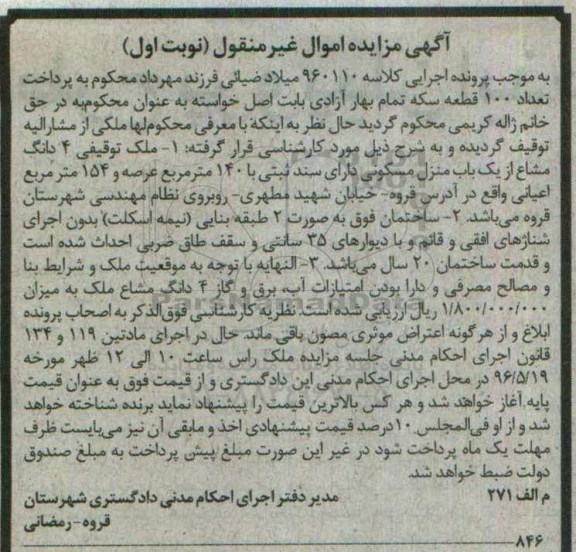 آگهی مزایده اموال غیر منقول (نوبت اول)
به موجب پرونده اجرایی کلاسه ۹۶۰۱۱۰ میلاد ضیائی فرزند مهرداد محکوم به پرداخت
تعداد ۱۰۰ قطعه سکه تمام بهار آزادی بابت اصل خواسته به عنوان محکوم‌به در حق
خانم ژاله کریمی محکوم گردید حال نظر به اینکه با معرفی محکوم‌لها ملکی از مشارالیه
توقیف گردیده و به شرح ذیل مورد کارشناسی قرار گرفته: ۱- ملک توقیفی ۴ دانگ
مشاع از یک باب منزل مسکونی دارای سند ثبتی با ۱۴۰ مترمربع عرصه و ۱۵۴ متر مربع
اعیانی واقع در آدرس قروه- خیابان شهید مطهری- روبروی نظام مهندسی شهرستان
قروه می‌باشد. ۲- ساختمان فوق به صورت ۲ طبقه بنایی (نیمه اسکلت) بدون اجرای
شناژهای افقی و قائم و با دیوارهای ۳۵ سانتی و سقف طاق ضربی احداث شده است
و قدمت ساختمان ۲۰ سال می‌باشد. ۳- النهایه با توجه به موقعیت ملک و شرایط بنا
و مصالح مصرفی و دارا بودن امتیازات آب، برق و گاز ۴ دانگ مشاع ملک به میزان
۱/۸۰۰/۰۰۰/۰۰۰ ریال ارزیابی شده است. نظریه کارشناسی فوق‌الذکر به اصحاب پرونده
ابلاغ و از هرگونه اعتراض موثری مصون باقی ماند. حال در اجرای مادتین ۱۱۹ و ۱۳۴
قانون اجرای احکام مدنی جلسه مزایده ملک راس ساعت ۱۰ الی ۱۲ ظهر مورخه
۹۶/۵/۱۹ در محل اجرای احکام مدنی این دادگستری و از قیمت فوق به عنوان قیمت
پایه آغاز خواهد شد و هر کس بالاترین قیمت را پیشنهاد نماید برنده شناخته خواهد
شد و از او فی‌المجلس ۱۰درصد قیمت پیشنهادی اخذ و مابقی آن نیز می‌بایست ظرف
مهلت یک ماه پرداخت شود در غیر این صورت مبلغ پیش پرداخت به مبلغ صندوق
دولت ضبط خواهد شد.
م الف ۲۷۱ مدیر دفتر اجرای احکام مدنی دادگستری شهرستان
قروه-رمضانی
۸۴۶